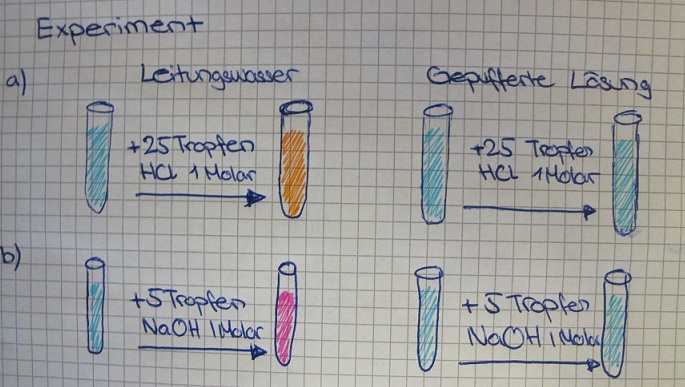 Experiment
a) Leitungswasser Gepufferte Lösung
+25 Tropfen
HCl 1 Molar
+25 Tropfen
HCl 1 Molar
b)
+5 Tropfen
NaOH 1 Molar
+5 Tropfen
NaOH 1 Molar